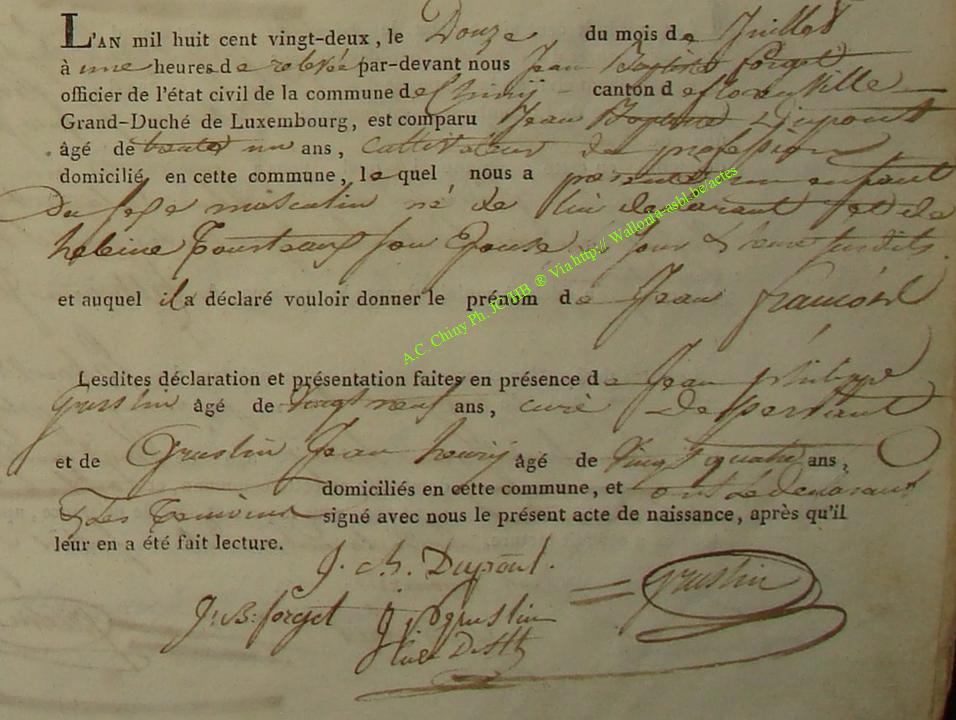 L'AN mil huit cent vingt-deux, le Douze du mois de Juillet
à une heures de relevée par-devant nous Jean Baptiste forget
officier de l'état civil de la commune de Chiny canton de florenville
Grand-Duché de Luxembourg, est comparu Jean Baptiste Dupont
âgé de trente un ans, cultivateur de profession
domicilié en cette commune, lequel nous a présenté un enfant
du sexe masculin né de lui déclarant et de
helene son Epouse jour & heure susdits
et auquel il a déclaré vouloir donner le prénom de Jean françois
Lesdites déclaration et présentation faites en présence de Jean philippe
Gruslin âgé de vingt neuf ans, curé
et de Gruslin Jean henrij âgé de vingt quatre ans,
domiciliés en cette commune, et ont le declarant
& les Temoins signé avec nous le présent acte de naissance, après qu'il
leur en a été fait lecture.
Dupont.
J. B. forget J. P. gruslin gruslin
A.C. Chiny Ph. JC/HB ® Via http:// Wallonia-asbl.be/actes